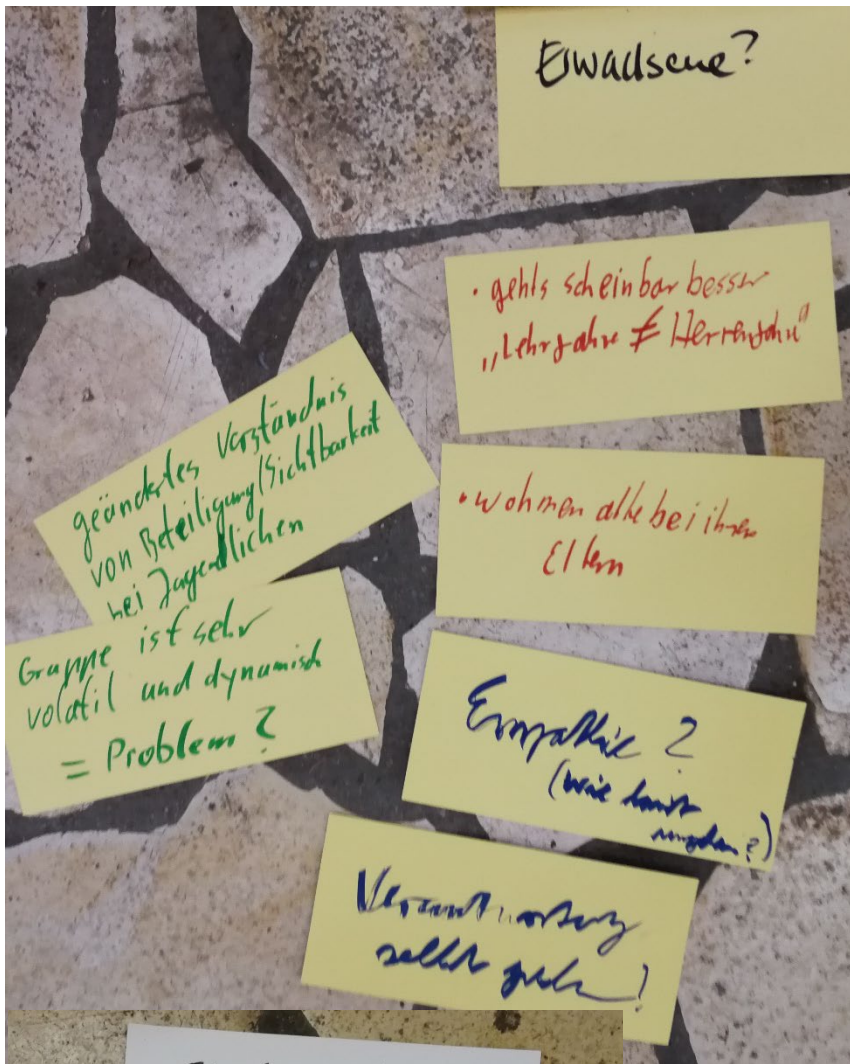 Erwachsene?
• gehts scheinbar besser
„Lehrjahre ≠ Herrenjahre"
geändertes Verständnis
von Beteiligung/Sichtbarkeit
bei Jugendlichen
• wohnen alle bei ihren
Eltern
Gruppe ist sehr
volatil und dynamisch
= Problem?
Empathie?
(wie damit
umgehen?)
Verantwortung
selbst